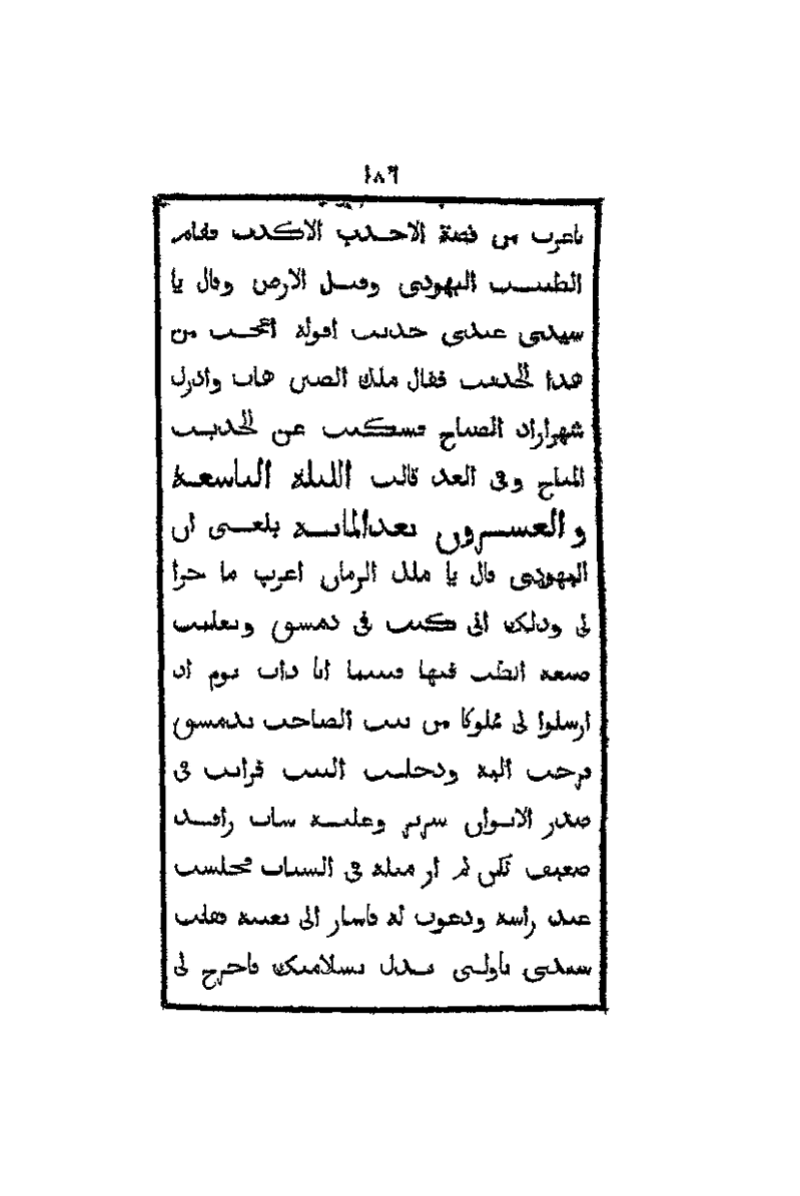 ١٨٦
باغرب من قصة الاحدب الاكدب فقام
الطبيب اليهودى وقبل الارض وقال يا
سيدى عندى حديث اقوله اعجب من
هذا الحديث فقال ملك الصين هات وادرك
شهرازاد الصباح فسكتت عن الحديث
المباح وفى الغد قالت الليلة التاسعة
والعشرون بعد المائة بلغنى ان
اليهودى قال يا ملك الزمان اغرب ما جرا
لى وذلك انى كنت فى دمشق وتعلمت
صنعة الطب فيها فبينما انا ذات يوم اذ
ارسلوا لى مملوكا من بيت الصاحب بدمشق
فرحت اليه ودخلت البيت فرايت فى
صدر الايوان سرير وعليه شاب راقد
ضعيف لكن لم ار مثله فى الشباب فجلست
عند راسه ودعوت له فاشار الى بعينه فقلت
سيدى ناولنى يدك بسلامتك فاخرج لى